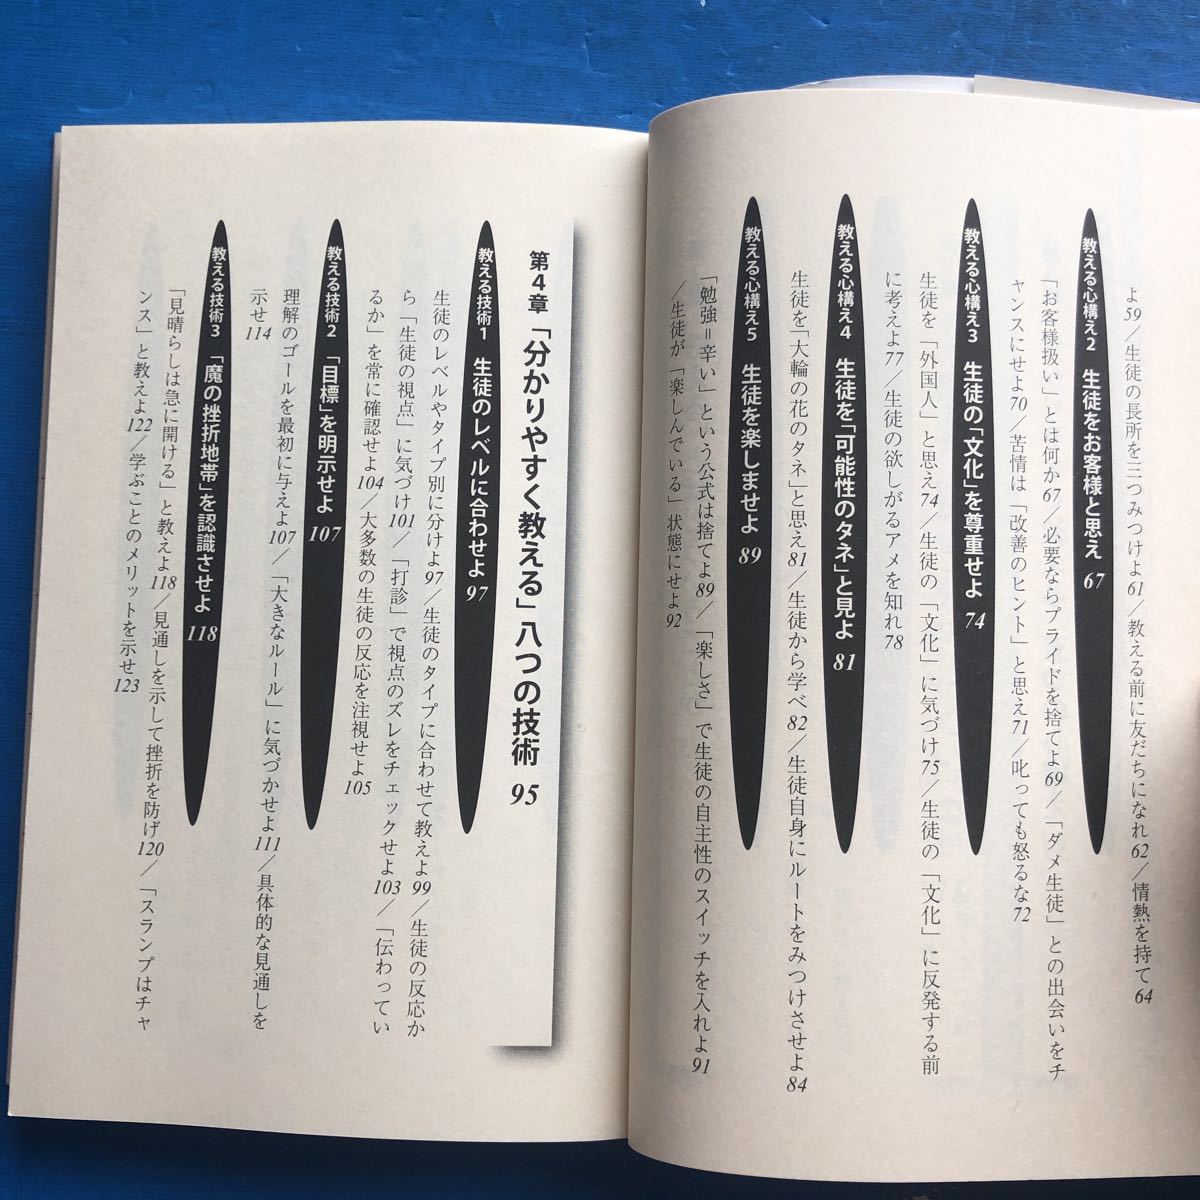 よ59/生徒の長所を三つみつけよ61/教える前に友だちになれ62/情熱を持て64
教える心構え2 生徒をお客様と思え 67
「お客様扱い」とは何か67/必要ならプライドを捨てよ69/「ダメ生徒」との出会いをチ
ャンスにせよ70/苦情は「改善のヒント」と思え71/叱っても怒るな72
教える心構え3 生徒の「文化」を尊重せよ 74
生徒を「外国人」と思え74/生徒の「文化」に気づけ75/生徒の「文化」に反発する前
に考えよ77/生徒の欲しがるアメを知れ78
教える心構え4 生徒を「可能性のタネ」と見よ 81
生徒を「大輪の花のタネ」と思え81/生徒から学べ82/生徒自身にルートをみつけさせよ84
教える心構え5 生徒を楽しませよ 89
「勉強=辛い」という公式は捨てよ89/「楽しさ」で生徒の自主性のスイッチを入れよ91
/生徒が「楽しんでいる」状態にせよ92
第4章 「分かりやすく教える」八つの技術 95
教える技術1 生徒のレベルに合わせよ 97
生徒のレベルやタイプ別に分けよ97/生徒のタイプに合わせて教えよ99/生徒の反応か
ら「生徒の視点」に気づけ101/「打診」で視点のズレをチェックせよ103/「伝わってい
るか」を常に確認せよ104/大多数の生徒の反応を注視せよ105
教える技術2 「目標」を明示せよ 107
理解のゴールを最初に与えよ107/「大きなルール」に気づかせよ111/具体的な見通しを
示せ114
教える技術3 「魔の挫折地帯」を認識させよ 118
「見晴らしは急に開ける」と教えよ118/見通しを示して挫折を防げ120/「スランプはチャ
ンス」と教えよ122/学ぶことのメリットを示せ123